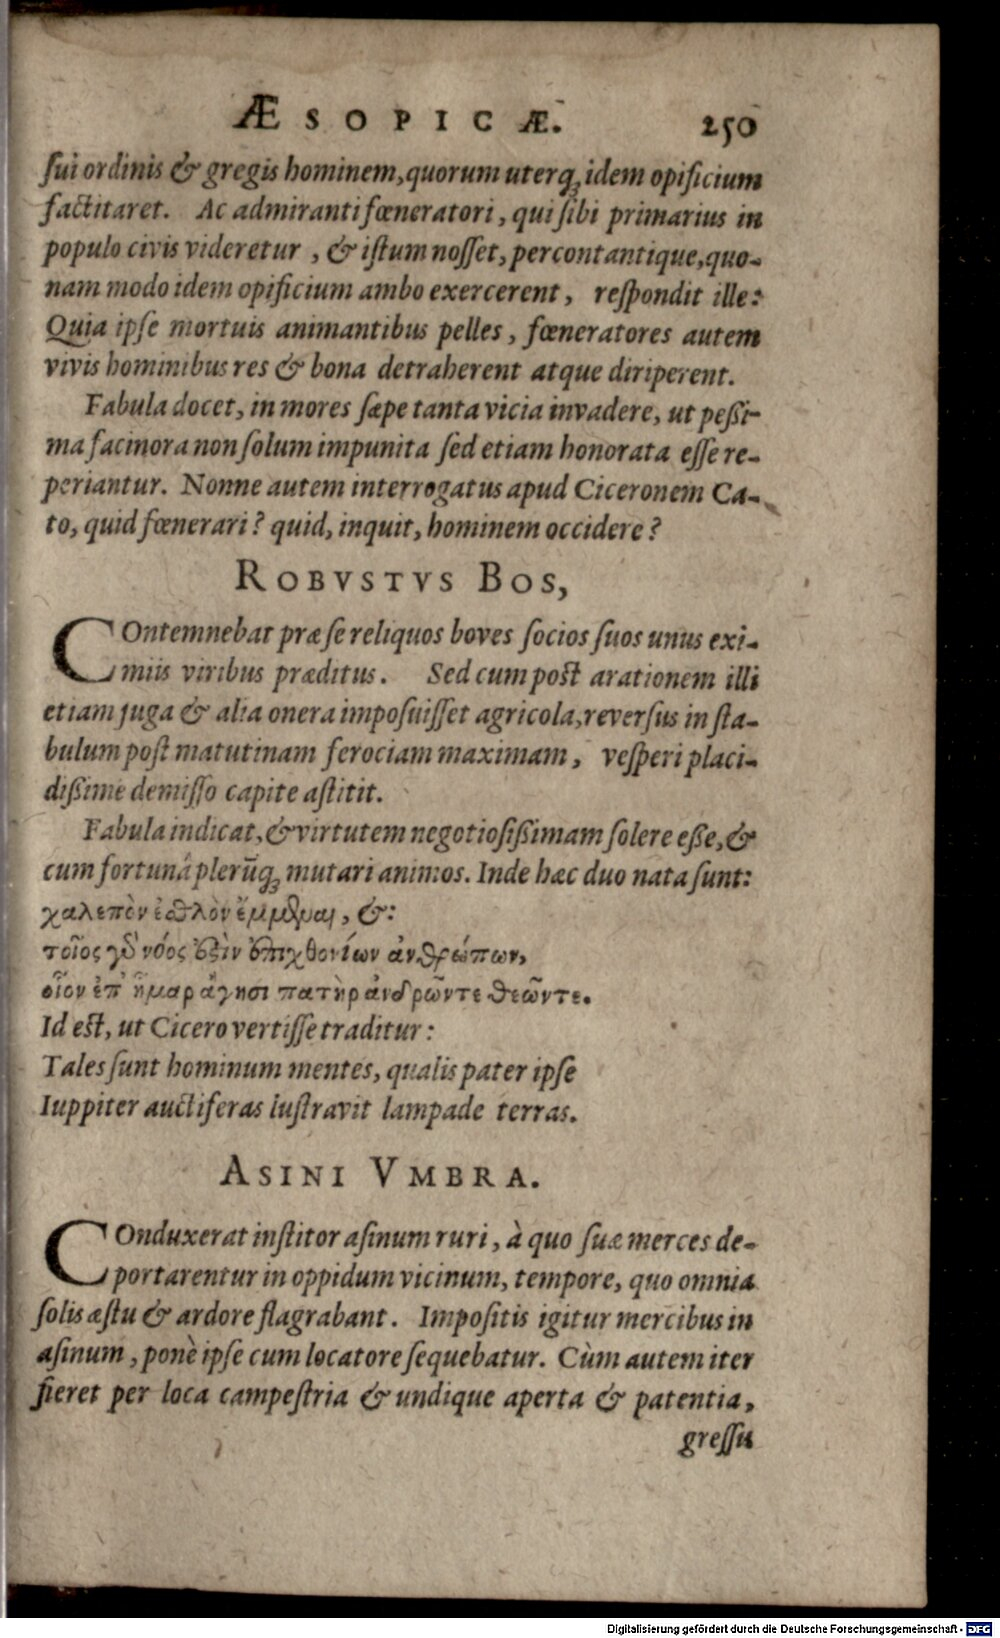 ÆSOPICÆ. 250
sui ordinis & gregis hominem, quorum uterq; idem opificium
factitaret. Ac admiranti fœneratori, qui sibi primarius in
populo civis videretur, & istum nosset, percontantique, quo-
nam modo idem opificium ambo exercerent, respondit ille:
Quia ipse mortuis animantibus pelles, fœneratores autem
vivis hominibus res & bona detraherent atque diriperent.
Fabula docet, in mores sæpe tanta vicia invadere, ut peßi-
ma facinora non solum impunita sed etiam honorata esse re-
periantur. Nonne autem interrogatus apud Ciceronem Ca-
to, quid fœnerari? quid, inquit, hominem occidere?
ROBVSTVS BOS,
COntemnebat præ se reliquos boves socios suos unus exi-
miis viribus præditus. Sed cum post arationem illi
etiam juga & alia onera imposuisset agricola, reversus in sta-
bulum post matutinam ferociam maximam, vesperi placi-
dißime demisso capite astitit.
Fabula indicat, & virtutem negotiosißimam solere eße, &
cum fortunâ plerūq; mutari animos. Inde hæc duo nata sunt:
χαλεπὸν ἐσθλὸν ἔμμεναι, &:
τοῖος γὸ νόος ἐστὶν ἐπιχθονίων ἀνθρώπων,
οἷον ἐπ᾽ ἦμαρ ἄγησι πατὴρ ἀνδρῶντε θεῶντε.
Id est, ut Cicero vertisse traditur:
Tales sunt hominum mentes, qualis pater ipse
Iuppiter auctiferas lustravit lampade terras.
ASINI VMBRA.
COnduxerat institor asinum ruri, à quo suæ merces de-
portarentur in oppidum vicinum, tempore, quo omnia
solis æstu & ardore flagrabant. Impositis igitur mercibus in
asinum, ponè ipse cum locatore sequebatur. Cùm autem iter
fieret per loca campestria & undique aperta & patentia,
gressu
Digitalisierung gefördert durch die Deutsche Forschungsgemeinschaft - DFG